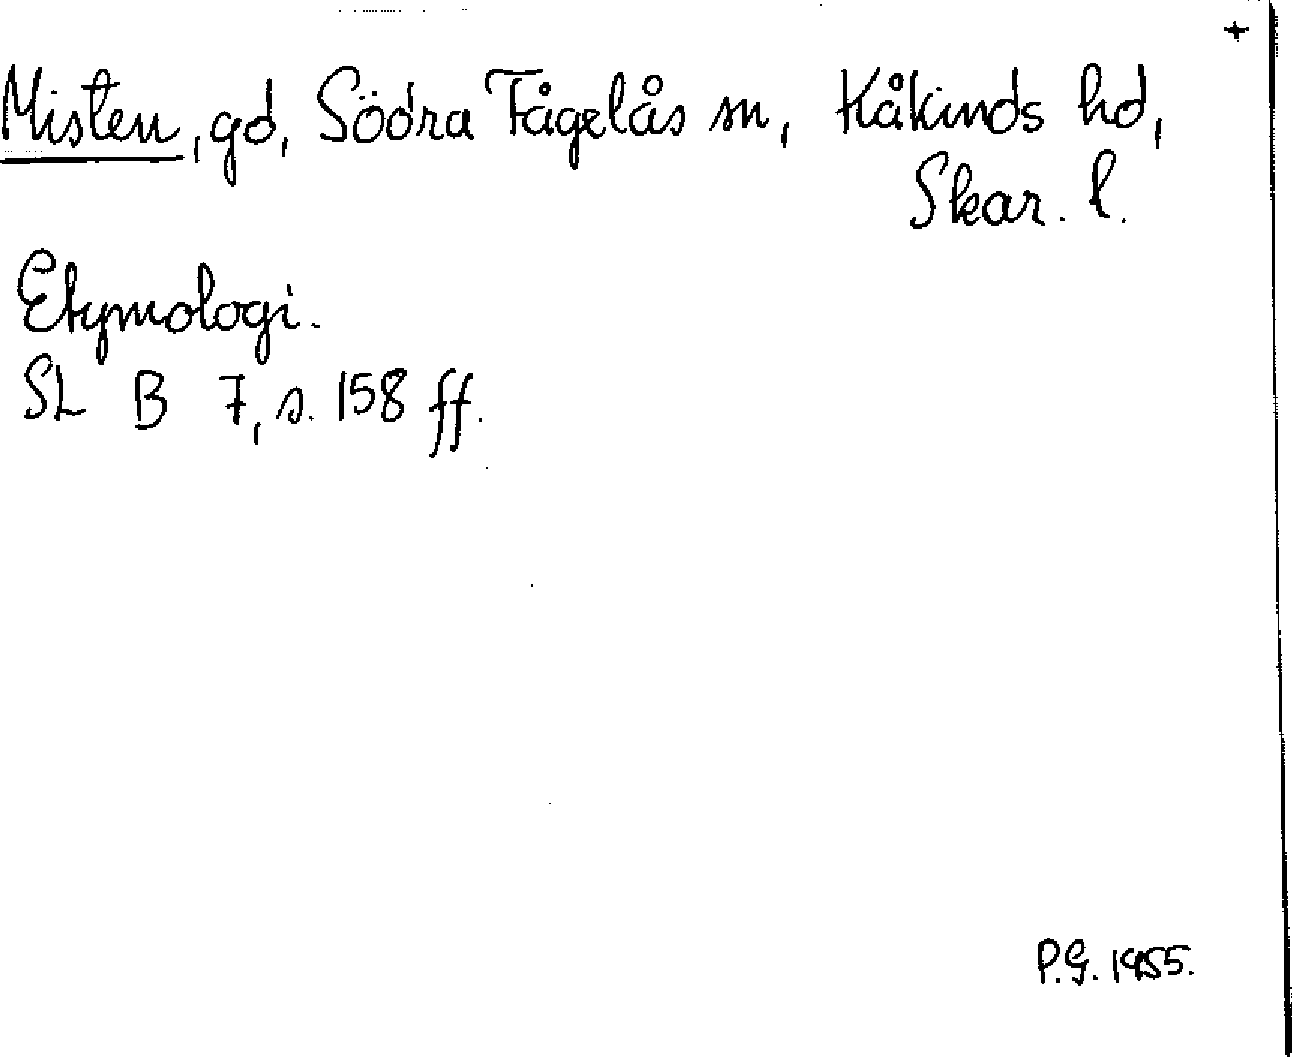 +
Misten, gd, Södra Fågelås sn, Kåkinds hd,
Skar. l.
Etymologi.
SL B 7, s. 158 ff.
P.G. 1955.